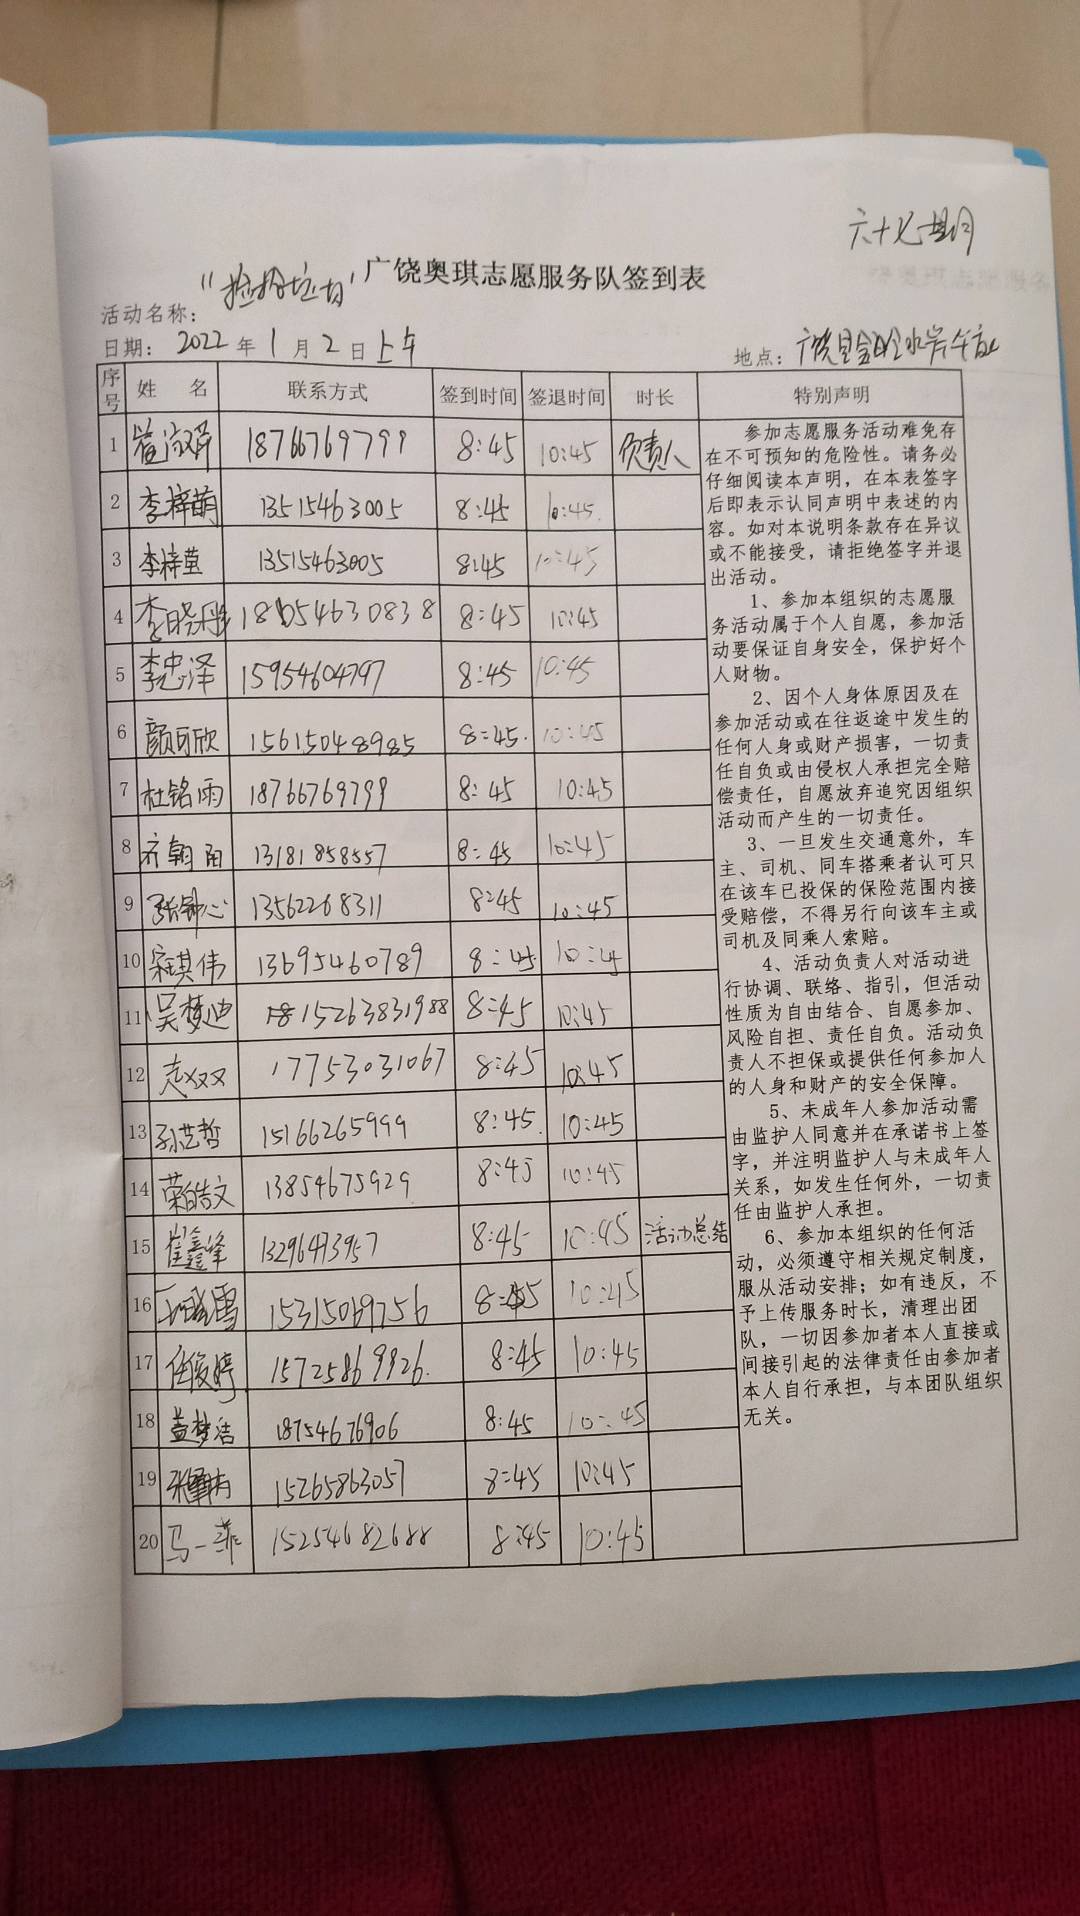 六十七期
广饶奥琪志愿服务队签到表
活动名称：“捡拾垃圾”
日期：2022年1月2日上午
地点：广饶县
序号 姓名 联系方式 签到时间 签退时间 时长 特别声明
1 崔淑萍 18766769799 8:45 10:45 负责人
2 李梓萌 13515463005 8:45 10:45
3 李梓萱 13515463005 8:45 10:45
4 李晓丹 181054630838 8:45 10:45
5 李忠泽 15954604797 8:45 10:45
6 颜可欣 15615048985 8:45 10:45
7 杜铭雨 18766769799 8:45 10:45
8 齐朝阳 13181858557 8:45 10:45
9 张 心 13562268311 8:45 10:45
10 宋其伟 13695460789 8:45 10:45
11 吴梦迪 8:45 10:45
12 双双 17753031067 8:45 10:45
13 孙艺哲 15166265999 8:45 10:45
14 荣皓文 13854675929 8:45 10:45
15 崔鑫峰 13296473957 8:45 10:45 活动总结
16 雪 15315069756 8:45 10:45
17 任俊婷 15725869926 8:45 10:45
18 盖梦洁 18754676906 8:45 10:45
19 张 15265863057 8:45 10:45
20 马一菲 15254682688 8:45 10:45
参加志愿服务活动难免存
在不可预知的危险性。请务必
仔细阅读本声明，在本表签字
后即表示认同声明中表述的内
容。如对本说明条款存在异议
或不能接受，请拒绝签字并退
出活动。
1、参加本组织的志愿服
务活动属于个人自愿，参加活
动要保证自身安全，保护好个
人财物。
2、因个人身体原因及在
参加活动或在往返途中发生的
任何人身或财产损害，一切责
任自负或由侵权人承担完全赔
偿责任，自愿放弃追究因组织
活动而产生的一切责任。
3、一旦发生交通意外，车
主、司机、同车搭乘者认可只
在该车已投保的保险范围内接
受赔偿，不得另行向该车主或
司机及同乘人索赔。
4、活动负责人对活动进
行协调、联络、指引，但活动
性质为自由结合、自愿参加、
风险自担、责任自负。活动负
责人不担保或提供任何参加人
的人身和财产的安全保障。
5、未成年人参加活动需
由监护人同意并在承诺书上签
字，并注明监护人与未成年人
关系，如发生任何外，一切责
任由监护人承担。
6、参加本组织的任何活
动，必须遵守相关规定制度，
服从活动安排；如有违反，不
予上传服务时长，清理出团
队，一切因参加者本人直接或
间接引起的法律责任由参加者
本人自行承担，与本团队组织
无关。